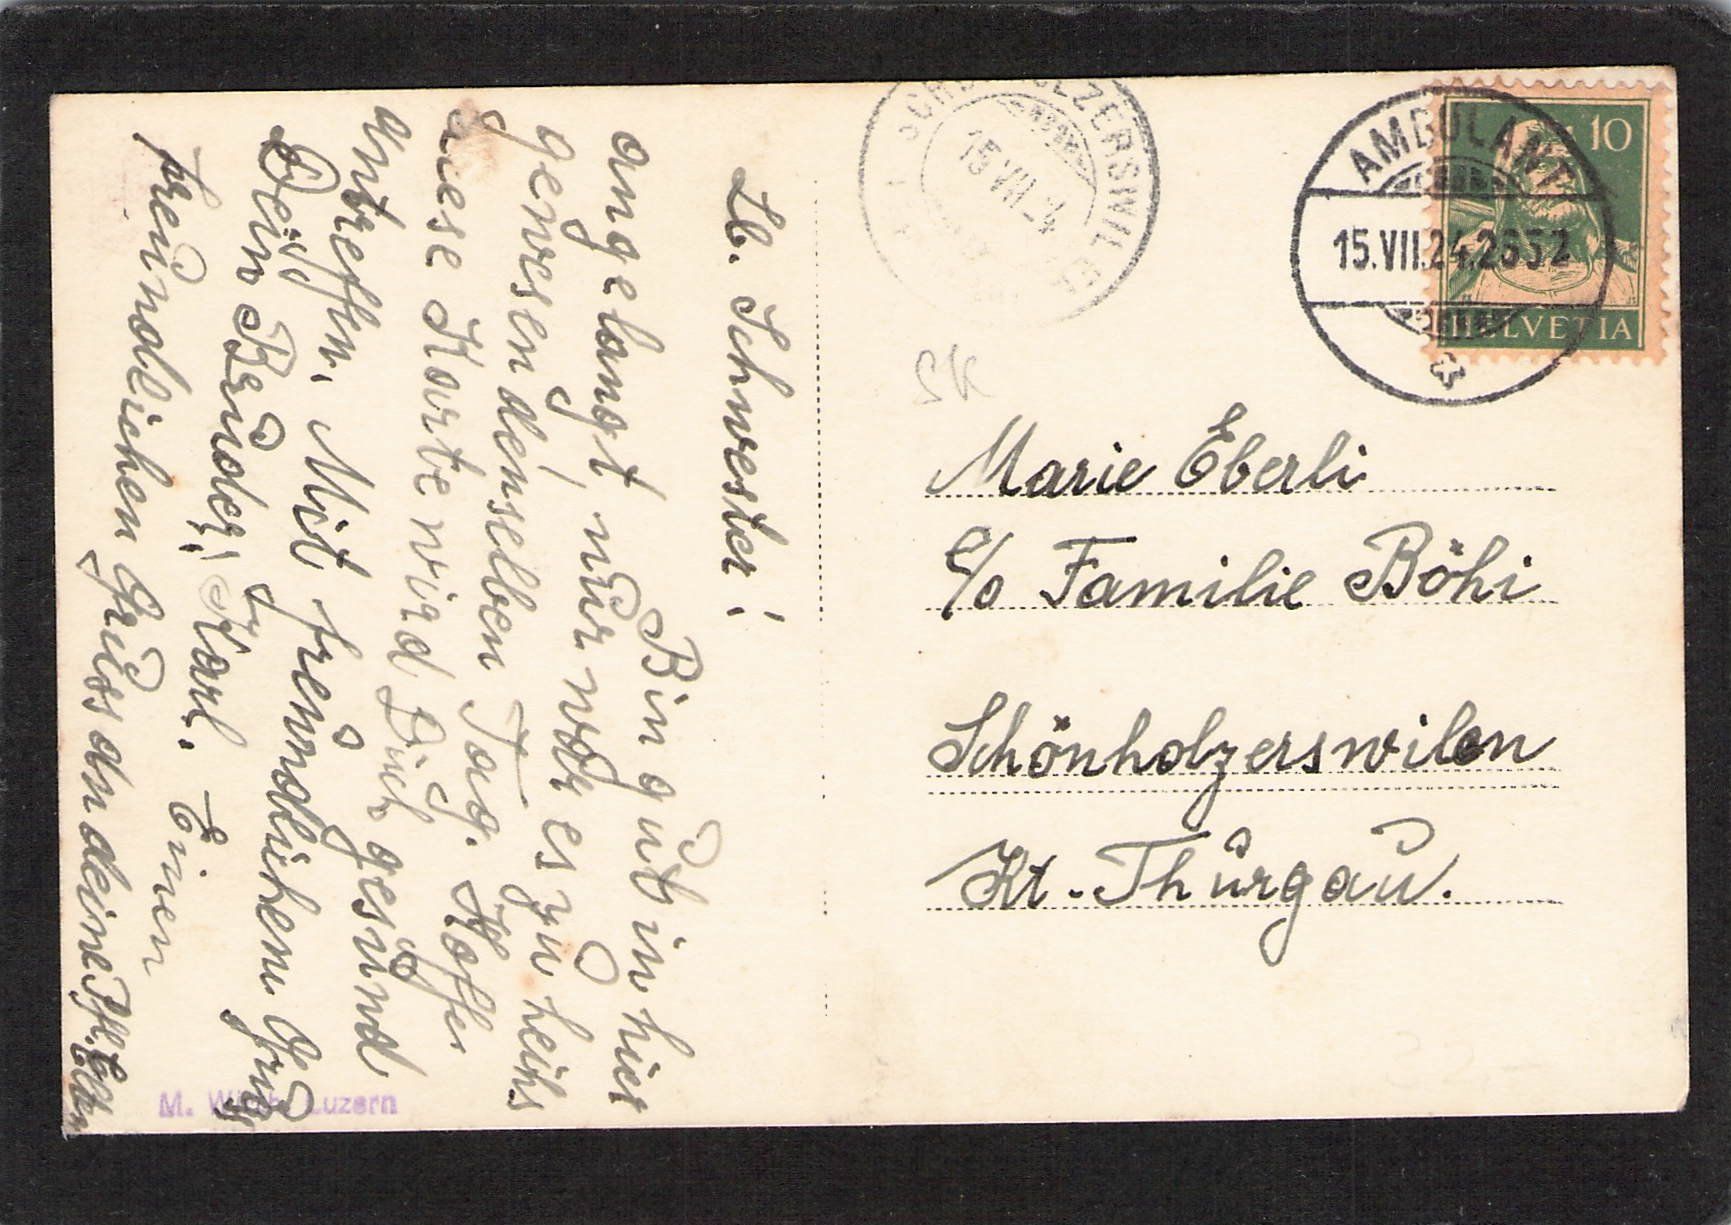 Lb. Schwester!
Bin gut in hier
angelangt nur war es zu heiss
gewesen denselben Tag. Hoffe
diese Karte wird Dich gesund
antreffen. Mit freundlichem Gruss
Dein Bruder, Karl. Einen
freundlichen Gruss an deine Pfl. Eltern
M. Luzern
15.VII.24
AMBULANT
15.VII.24.2652
10
HELVETIA
Marie Eberli
c/o Familie Böhi
Schönholzerswilen
Kt. Thurgau.